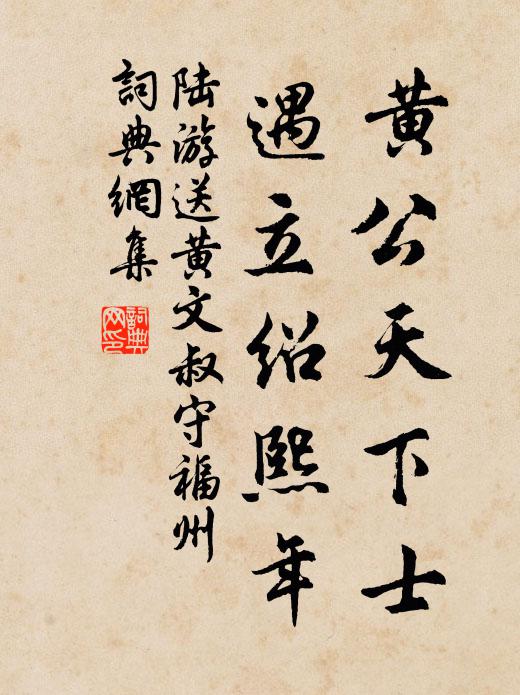 黄公天下士
遇立紹熙年
陆游送黄文叔守福州
詞典網集
詞典网印